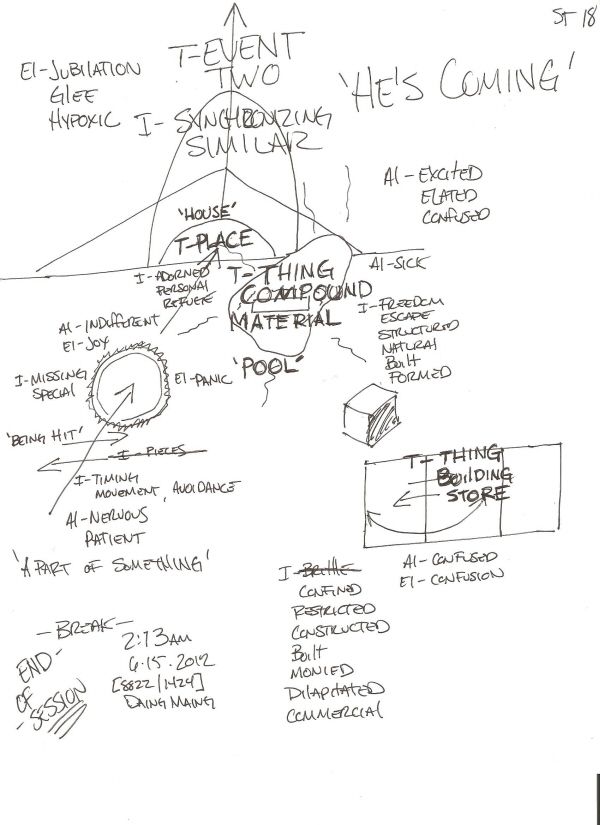 ST 18
T-EVENT
TWO
EI-JUBILATION
GLEE
HYPOXIC
'HE'S COMING'
I-SYNCHRONIZING
SIMILAR
AI-EXCITED
ELATED
CONFUSED
'HOUSE'
T-PLACE
I-ADORNED
PERSONAL
REFUGE
T-THING
COMPOUND
MATERIAL
AI-SICK
I-FREEDOM
ESCAPE
STRUCTURED
NATURAL
BUILT
FORMED
AI-INDIFFERENT
EI-JOY
I-MISSING
SPECIAL
EI-PANIC
'POOL'
'BEING HIT'
I-PIECES
I-TIMING
MOVEMENT, AVOIDANCE
AI-NERVOUS
PATIENT
'A PART OF SOMETHING'
T-THING
BUILDING
STORE
AI-CONFUSED
EI-CONFUSION
I-BRITTLE
CONFINED
RESTRICTED
CONSTRUCTED
BUILT
MONIED
DILAPITATED
COMMERCIAL
-BREAK-
2:13AM
6.15.2012
[8822/1424]
DAING MAING
END
OF
SESSION